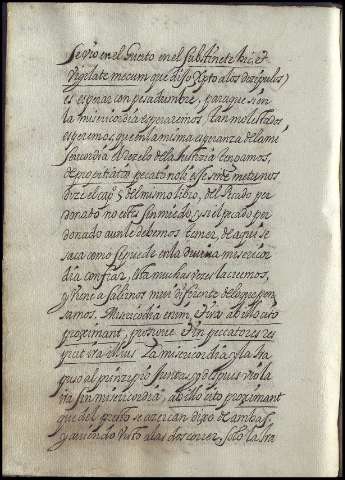 Se vio en el Huerto en el Sustinete hic, et
Vigilate mecum que dixo Xpto a los discipulos
es esperar con pesadumbre, para que si en
la misericordia esperaremos tan molestados,
esperemos, que en la misma esperanza de la mi
sericordia el rezelo de la Justicia tengamos,
de propitiato peccato noli esse sine metu nos
dize el capº 5 del mismo libro, del Pecado per
donato no estes sin miedo, y si el pecado per
donado aun le debemos temer, de aqui se
saca como se puede en la divina misericor
dia confiar, esta muchas vezes la creemos,
y viene a salirnos muy diferente de lo que pen
samos. Misericordia enim, et ira ab illo cito
proximant, et in peccatores res
picit ira illius La misericordia y la Ira
puso al prinzipio juntas, y despues vio la
ira sin misericordia, ab illo cito proximant
que de presto se acercan dixo de ambas,
y aviendo visto a las dos correr, solo la Ira